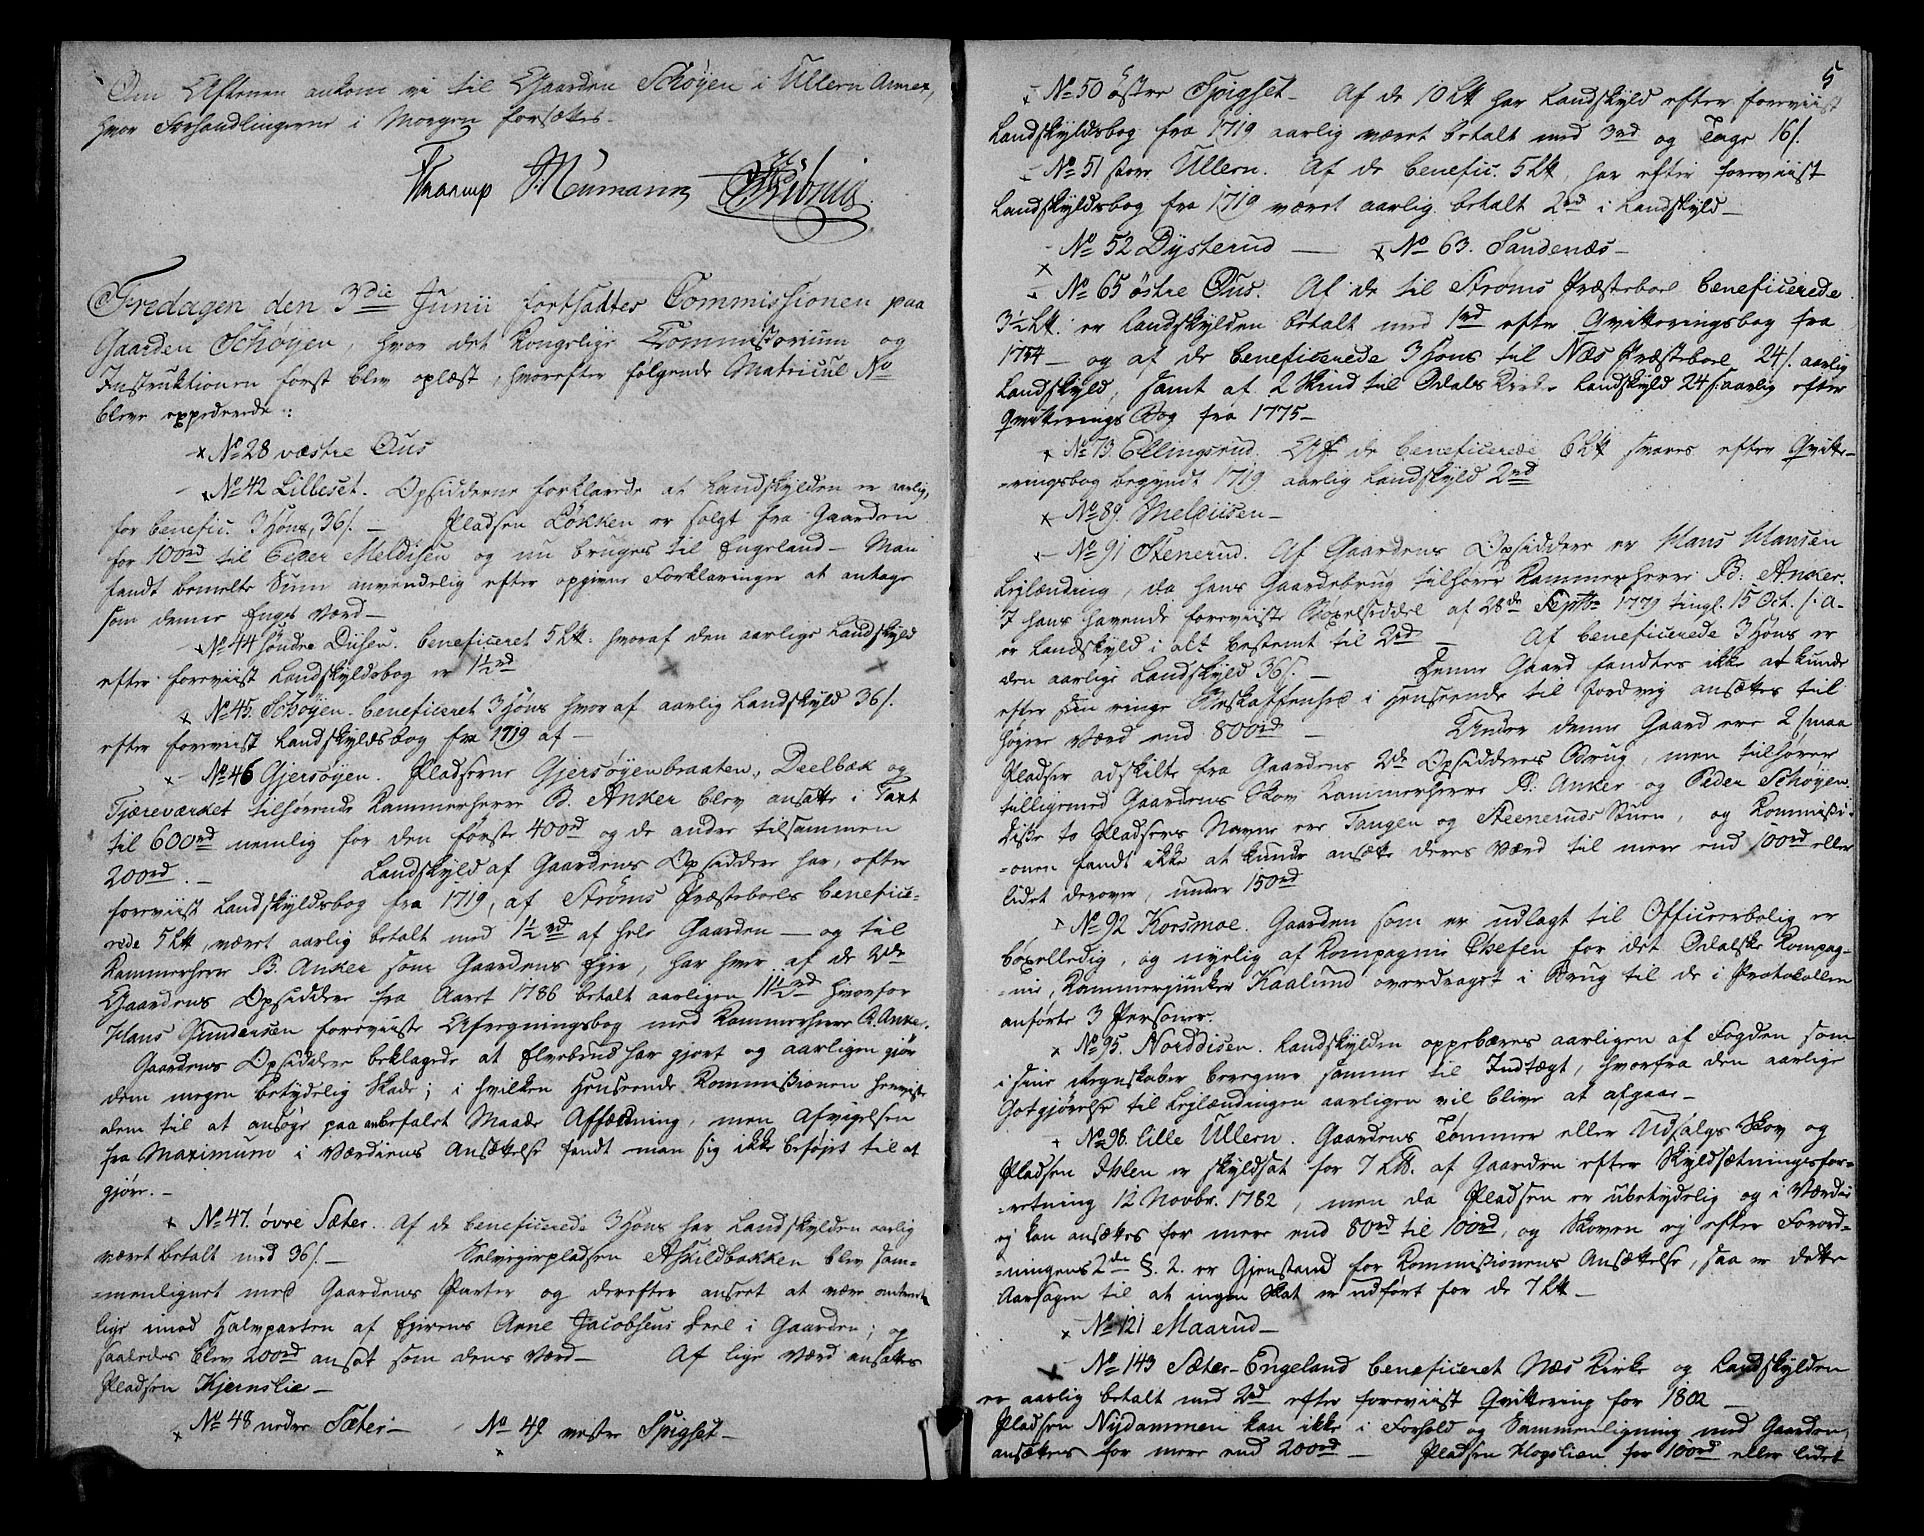 Om Aftenen ankom vi til Gaarden Schøyen i Ullern Annex,
hvor Forhandlingerne i Morgen forsættes.
Thaarup Neumann
Fredagen den 3die Junii fortsattes Commissionen paa
Gaarden Schøyen, hvor det Kongelige Commissorium og
Instruktionen først blev oplæst, hvorefter følgende Matricul No
bleve expederede::
No 28 væstre Ous
No 42 Lilleset. Opsidderne forklarede at Landskylden er aarlig,
for benefic. 3 Høns, 36 s. — Pladsen Løkken er solgt fra Gaarden
for 100rd til Peder Meldisen og nu bruges til Engeland — Man
fandt bemelte Sum anvendelig efter opgivne Forklaringer at antage
som denne Enges Værd —
No 44 søndre Disen. beneficeret 5 Lb: hvoraf den aarlige Landskyld
efter foreviist Landskyldsbog er 1½rd
No 45. Schøyen. beneficeret 3 Høns hvoraf aarlig Landskyld 36 s.
efter foreviist Landskyldsbog fra 1719 af —
No 46 Gjersøyen. Pladserne Gjersøyenbraaten, Deelbæk og
Tjæreværket tilhørende Kammerherre B. Anker blev ansatte i Taxt
til 600rd nemlig for den første 400rd og de andre tilsammen
200rd. — Landskyld af Gaardens Opsiddere har, efter
foreviist Landskyldsbog fra 1719, af Strøms Præsteboels benefice-
rede 5 Lb, været aarlig betalt med 1½rd af hele Gaarden — og til
Kammerherre B. Anker som Gaardens Eier, har hver af de 2de
Gaardens Opsiddere fra Aaret 1786 betalt aarligen 11½rd hvorfor
Hans Gundersen foreviiste Afregningsbog med Kammerherre B. Anker.
Gaardens Opsiddere beklagede at Elvebrud har gjort og aarligen gjør
dem megen betydelig Skade; i hvilken Henseende Kommissionen henviste
dem til at ansøge paa anbefalet Maade Affældning, men Afvigelsen
fra Maximum i Værdiens Ansættelse fandt man sig ikke beføjet til at
gjøre. —
No 47. øvre Sæter. Af de beneficerede 3 Høns har Landskylden aarlig
været betalt med 36 s. — Selveierpladsen Askildbakken blev sam-
=menlignet med Gaardens Parter og derefter anseet at være omtrent
lige imod Halvparten af Eierens Arne Jacobsens Deel i Gaarden; og
saaledes blev 200rd ansat som dens Værd — Af lige Værd ansattes
Pladsen Kjernslie —
No 48 nedre Sæter — No 49 vestre Spigset —
5
No 50 østre Spigset — Af de 10 Lb har Landskyld efter foreviist
Landskyldsbog fra 1719 aarlig været betalt med 3rd og Tage 16 s.
No 51 store Ullern. Af de benefic. 5 Lb, har efter foreviist
Landskyldsbog fra 1719 været aarlig betalt 2rd i Landskyld —
No 52 Dysterud — No 63. Sandenæs —
No 65 østre Ous. Af de til Strøms Præsteboel beneficerede
3½ Lb. er Landskylden betalt med 1rd efter Qvitteringsbog fra
1754 — og af de beneficerede 3 Høns til Næs Præsteboel 24 s. aarlig
Landskyld, samt af 2 Skind til Odals Kirke Landskyld 24 s. aarlig efter
Qvitterings Bog fra 1775 —
No 73 Ellingsrud. Af de beneficerede 6 Lb svares efter Qvitte-
=ringsbog begyndt 1719 aarlig Landskyld 2rd
No 89. Meldiisen —
No 91 Stenerud. Af Gaardens Opsiddere er Hans Hansen
Lejlænding, da hans Gaardebrug tilhører Kammerherre B: Anker.
I hans havende foreviiste Bøxelseddel af 28de Septbr 1779 tingl. 15 Oct. s: A-
er Landskyld i alt bestemt til 2rd — Af beneficerede 3 Høns er
den aarlige Landskyld 36 s. — Denne Gaard fandtes ikke at kunde
efter sin ringe Beskaffenhed i Henseende til Jordvej ansættes til
højere Værd end 800rd — Under denne Gaard ere 2 smaa
Pladser adskilte fra Gaardens 2de Opsidderes Brug, men tilhører
tilligemed Gaardens Skov Kammerherre B: Anker og Peder Schøyen.
Disse to Pladsers Navne ere Tangen og Steeneruds Stuen, og Kommissi-
=onen fandt ikke at kunde ansætte deres Værd til mere end 100rd eller
lidet derover, under 150rd
No 92 Korsmoe. Gaarden som er udlagt til Officeerbolig er
bøxelledig, og nyelig af Kompagnie Chefen for det Odalske Kompag-
=nie, Kammerjunker Kaalund overdraget i Brug til de i Protokollen
anførte 3 Personer.
No 95. Norddisen. Landskylden oppebæres aarligen af Fogden som
i sine Regnskaber beregner samme til Indtægt, hvorfra den aarlige
Godtgjørelse til Lejlændingen aarligen vil blive at afgaae —
No 98. lille Ullern. Gaardens Tømmer eller Udsalgs Skov og
Pladsen Ihlen er skyldsat for 7 Lb. af Gaarden efter Skyldsætningsfor-
=retning 12 Novbr. 1782, men da Pladsen er ubetydelig og i Værdie
ej kan ansættes for mere end 80rd til 100rd, og Skoven ej efter Forord-
=ningens 2de §. 2. er Gjenstand for Kommissionens Ansættelse, saa er dette
Aarsagen til at ingen Skat er udført for de 7 Lb —
No 121 Maarud —
No 143 Sæter-Engeland beneficeret Næs Kirke og Landskylden
er aarlig betalt med 2rd efter foreviist Qvittering for 1802 —
Pladsen Nydammen kan ikke i Forhold og Sammenligning med Gaarden
ansættes for mere end 200rd — Pladsen Klogslien for 100rd eller lidet